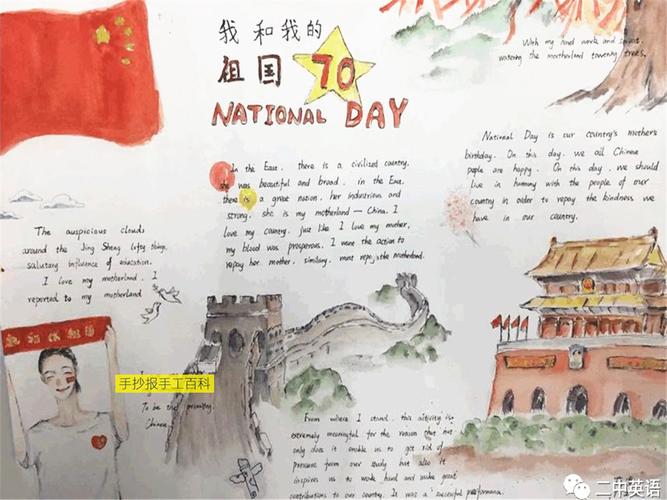 我和我的
祖国 70
NATIONAL DAY
With my hard work and
watering the motherland towering trees.
In the East, there is a civilized country.
she was beautiful and broad. in the East,
there is a great nation. her industrious and
strong. she is my motherland — China. I
love my country. just like I love my mother,
my blood was prosperous. I want the action to
repay her. mother, similarly, must repay the motherland.
National Day is our country's mother's
birthday. On this day, we all Chinese
people are happy. On this day, we should
live in harmony with the people of our
country in order to repay the kindness we
have in our country.
The auspicious clouds
around the Jing Sheng lofty
salutary influence of education.
I love my motherland. I
reported to my motherland
祖国
手抄报手工百科
To be the
China
From where I stand, this activity is
extremely meaningful for the reason that not
only does it enable us to get rid of
pressure from our study but also it
inspires us to work hard and make great
contributions to our country. It was a successful performance.
二中英语